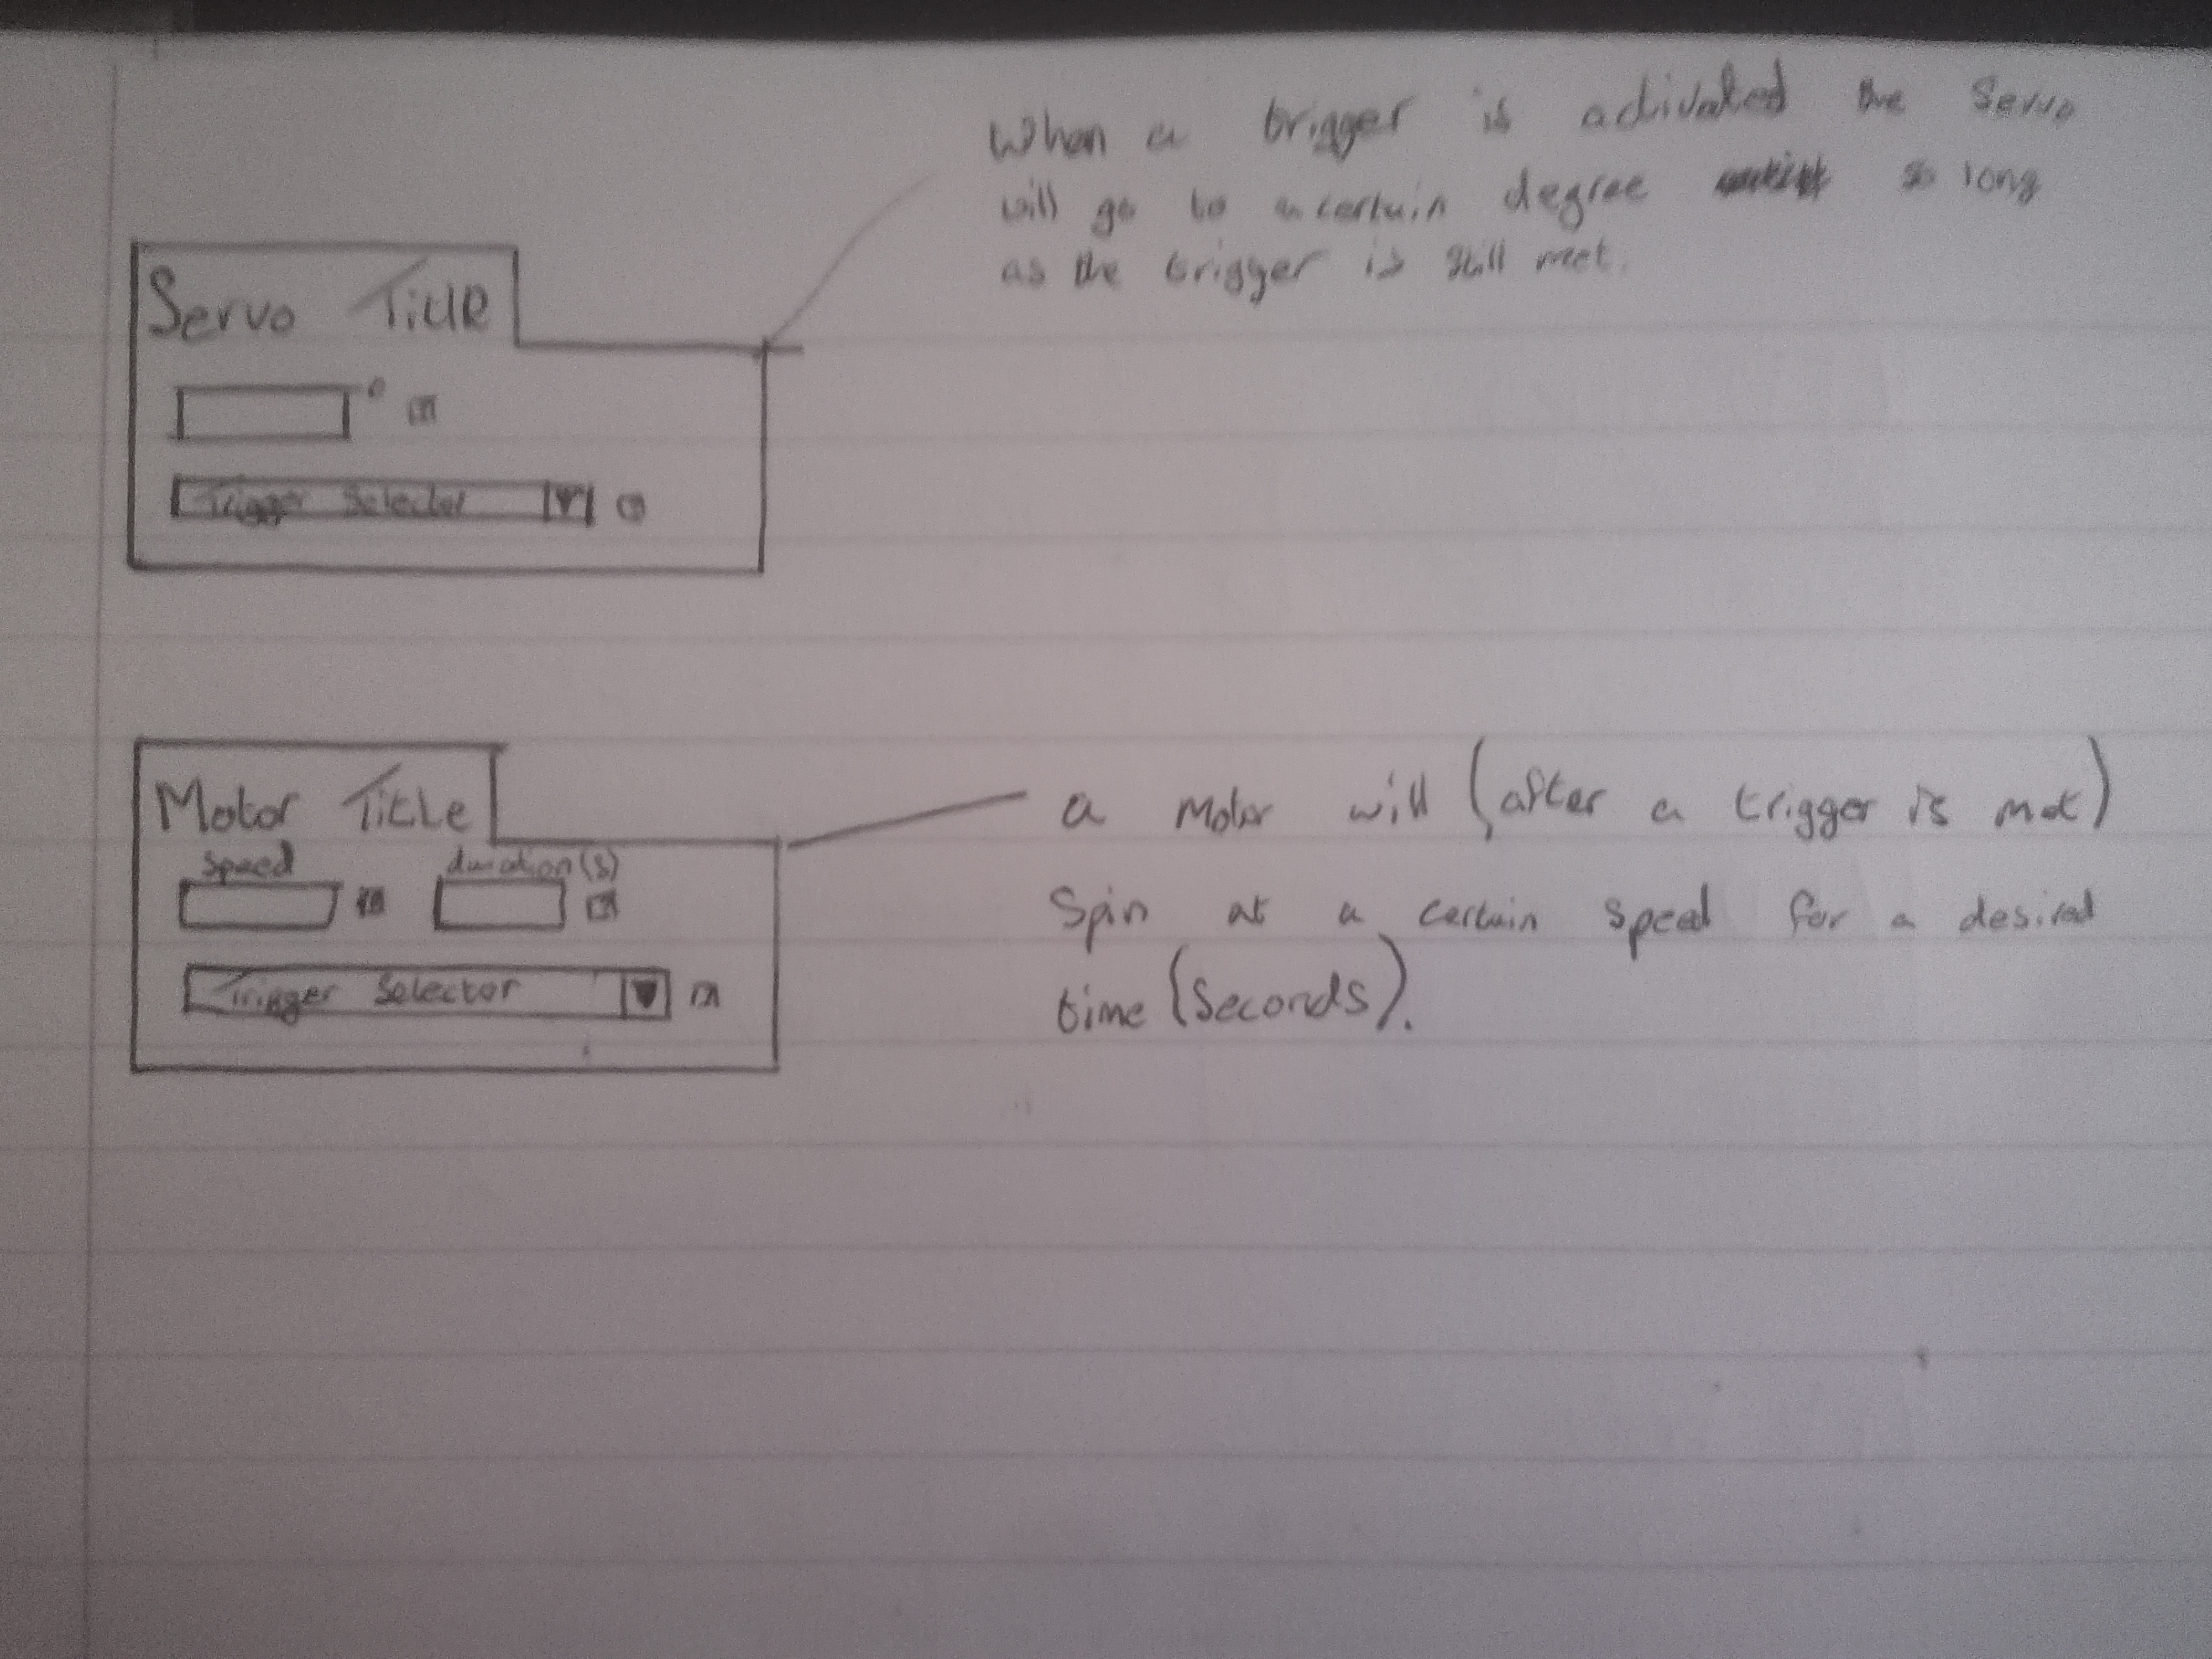 When a trigger is activated the Servo
will go to a certain degree so long
as the trigger is still met.
Servo Title
°
Trigger Selector
Motor Title
speed duration(s)
Trigger Selector
a Motor will (after a trigger is met)
Spin at a certain speed for a desired
time (Seconds).